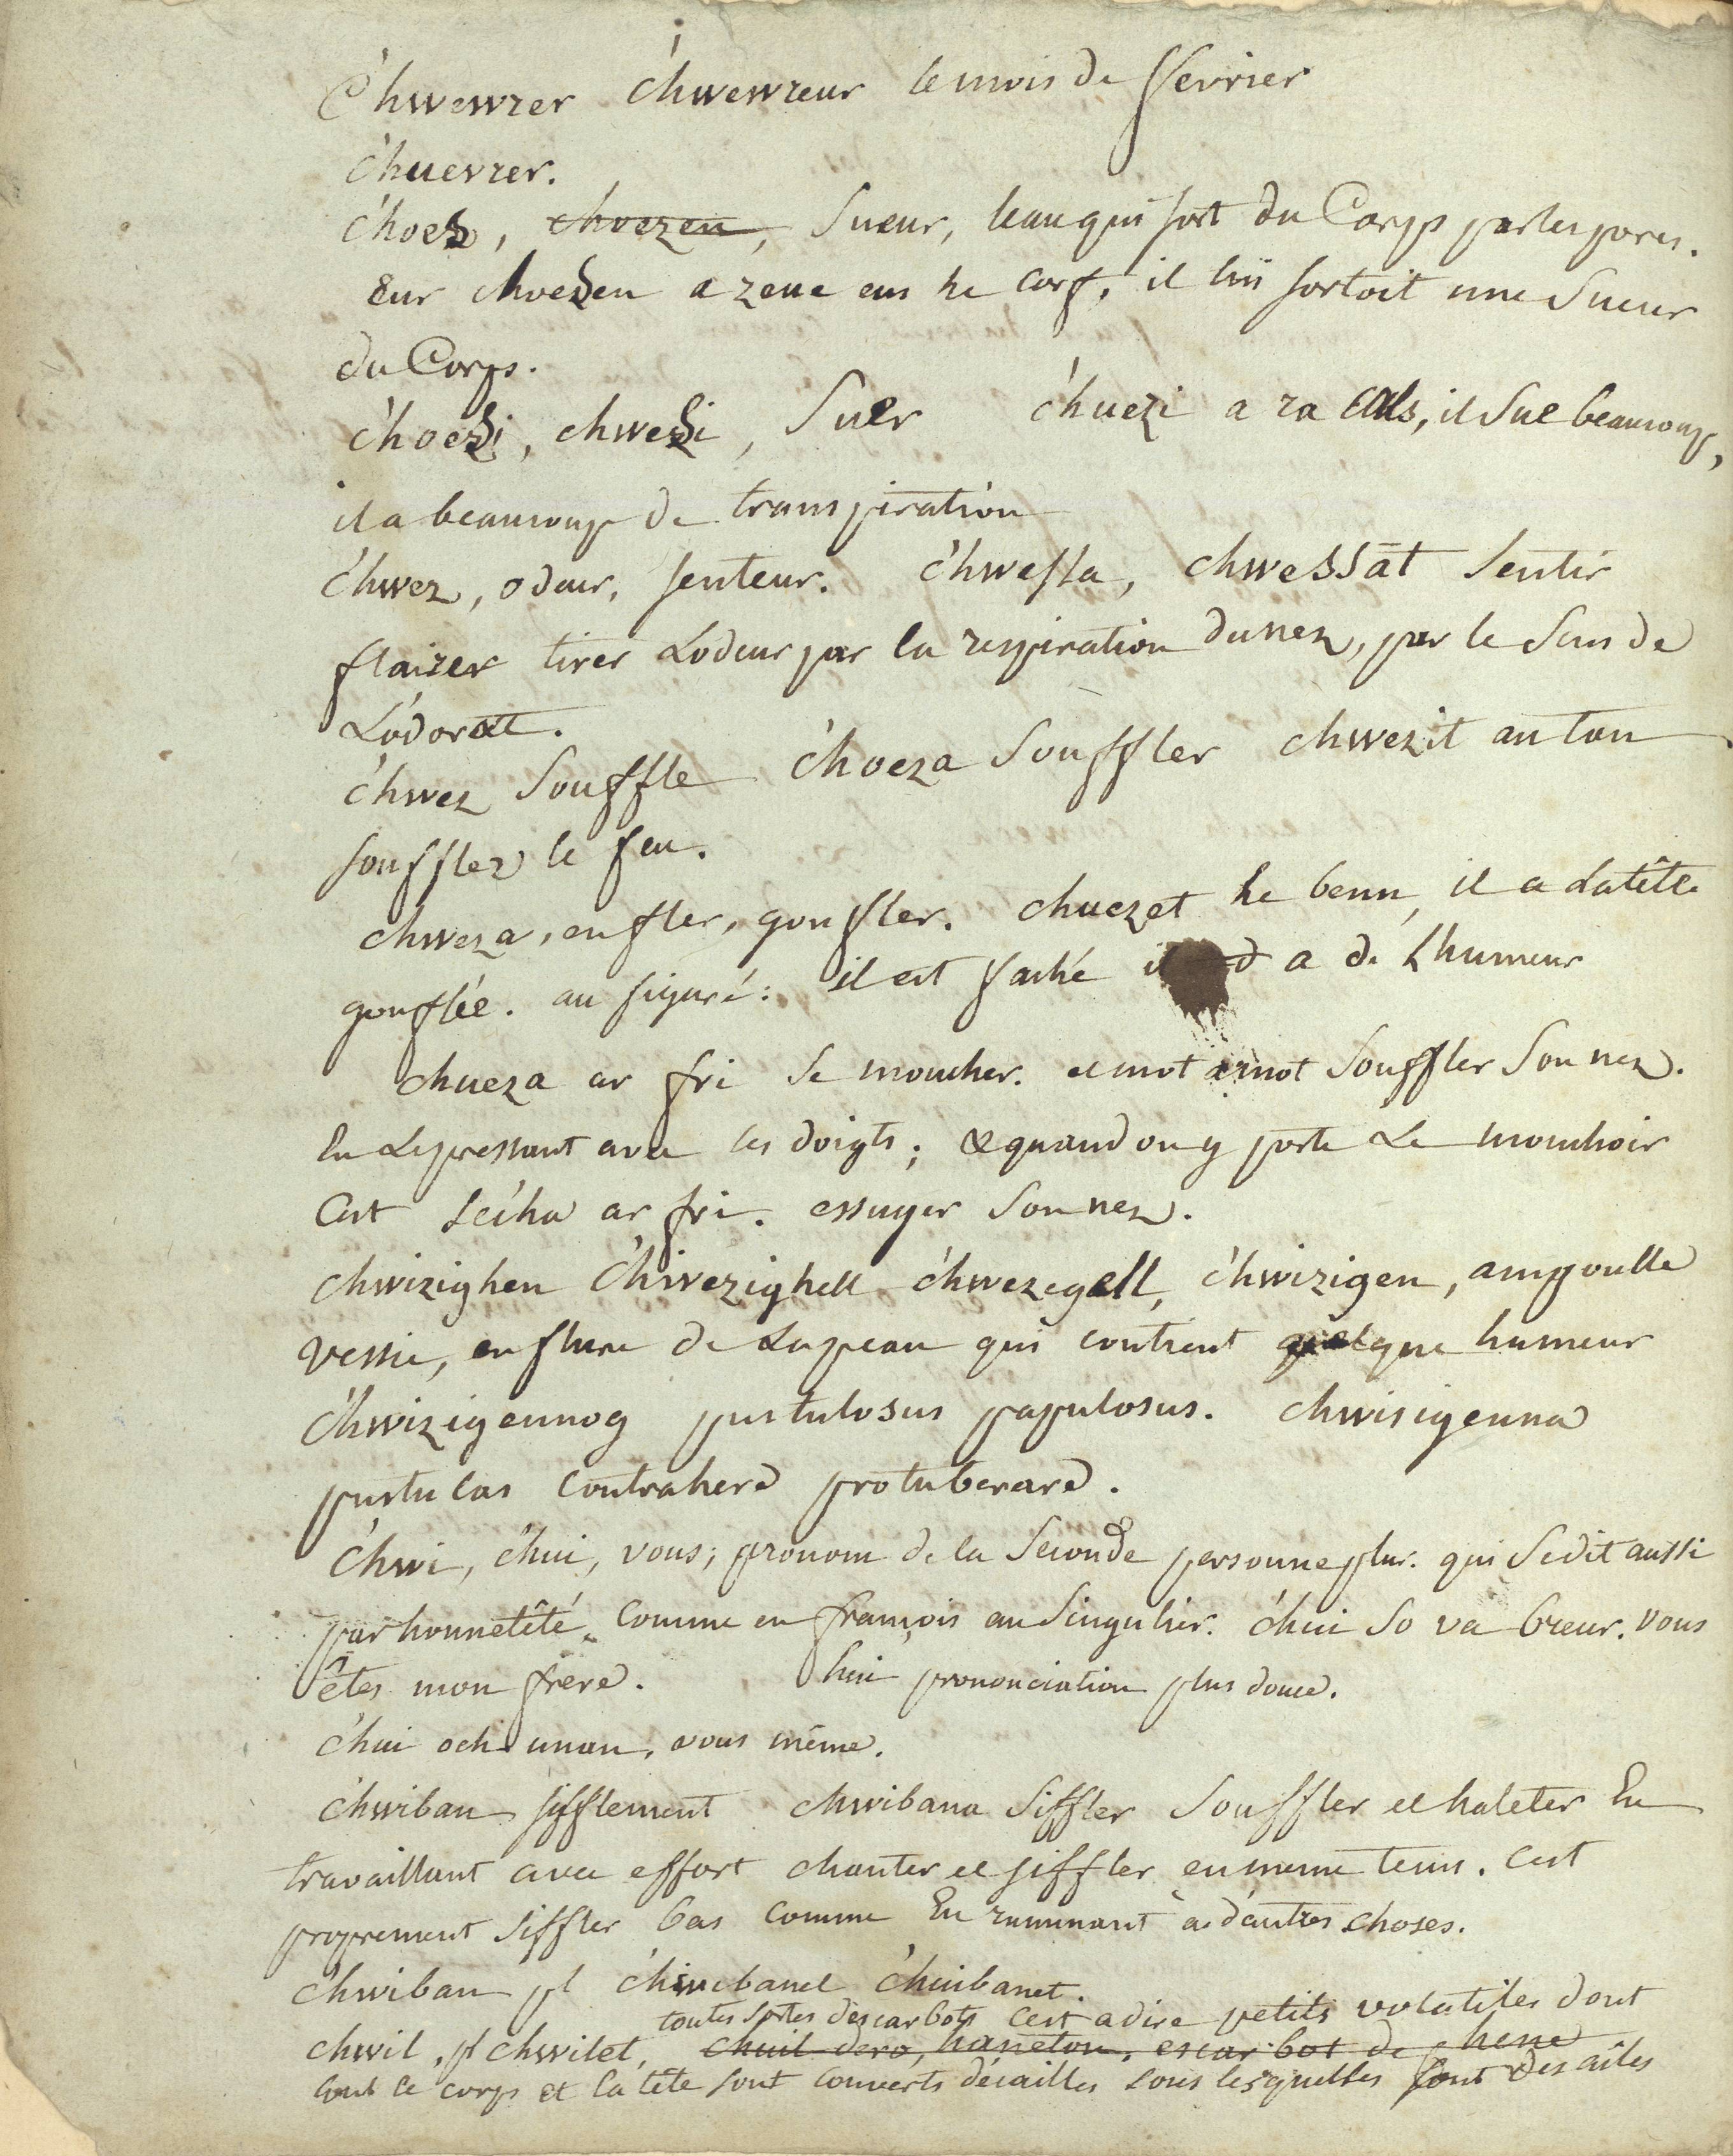 C'hwewrer c'hwewreur le mois de fevrier
c'huevrer.
c'hoes, choezen, Sueur, leau qui sort du Corps par les pores.
Eur choezen a zeue eus he corf, il lui sortoit une Sueur
du Corps.
c'hoezi, chwezi, Suer c'huezi a ra cals, il Sue beaucoup,
il a beaucoup de transpiration
c'hwez, odeur, senteur. c'hwessa, chwessat Sentir
flairer tirer Lodeur par la respiration du nez, par le Sens de
Lodorat.
c'hwez Souffle c'hoeza Souffler chwezit an tan
soufflez le feu.
chweza, enfler, gonfler. chuezet he benn, il a La tête
gonflée. au figuré: il est faché a de L'humeur
chueza ar fri se moucher. et mot a mot Souffler Son nez.
En Le pressant avec les doigts; & quand on y porte Le mouchoir
Cest sec'ha ar fri. essuyer Son nez.
chwizighen C'hwezighell c'hwezegell, c'hwizigen, ampoulle
vessie, enflure de La peau qui contient quelque humeur
C'hwizigennog pustulosus papulosus. chwisigenna
pustulas contrahere protuberare.
C'hwi, c'hui, vous; pronom de la Seconde personne plur. qui Se dit aussi
par honnetêté, comme en françois au Singulier. c'hui so va breur. vous
êtes mon frere. hui prononciation plus douce.
c'hui och unan, vous même.
c'hwiban sifflement chwibana Siffler Souffler et haleter En
travaillant avec effort chanter et siffler en meme tems. Cest
proprement Siffler bas comme En ruminant à d'autres choses.
c'hwiban pl c'hwibanel c'huibanet.
toutes sortes descarbots cest a dire petits volatiles dont
chwil, pl chwilet, chuil dero, haneton, escarbot de chene
tout le corps et la tête sont couverts décailles sous lesquelles sont des aîles